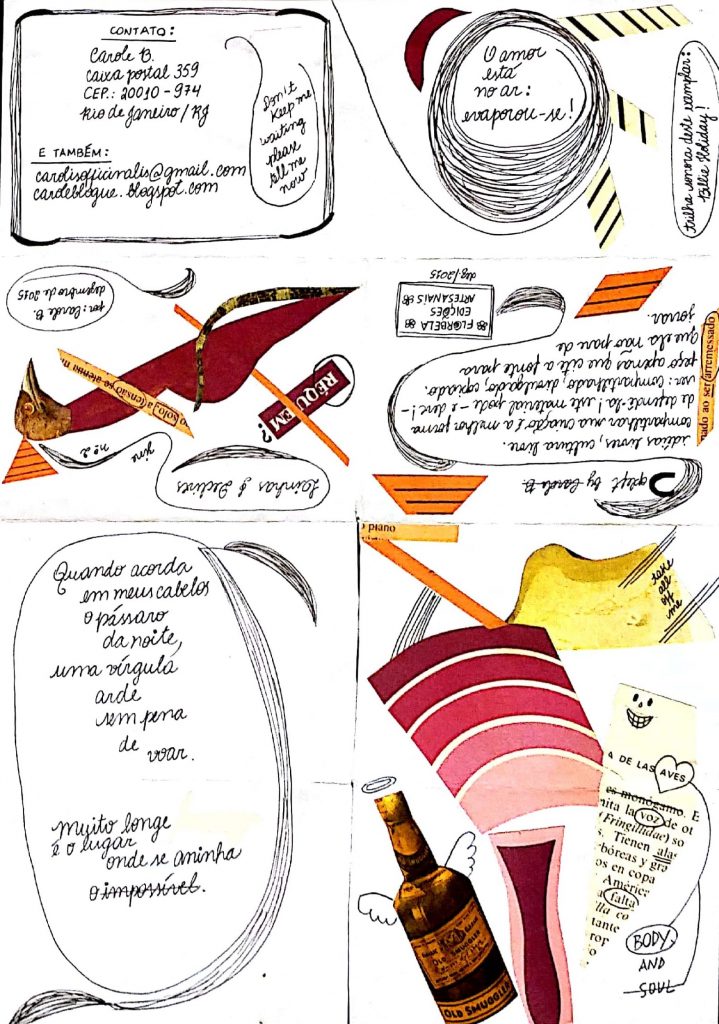 CONTATO:
Carole B.
caixa postal 359
CEP.: 20010-974
Rio de Janeiro/RJ
E TAMBÉM:
carolisofficinalis@gmail.com
caroleblogue.blogspot.com
Don't
keep me
waiting
please
tell me
now
O amor
está
no ar:
evaporou-se!
trilha sonora deste exemplar:
Billie Holiday!
por: Carole B.
dezembro de 2015
RÉQUIEM
?
Lainhas & Declives
zine nº 2
Copyleft by Carole B.
ideias livres, cultura livre.
compartilhar uma criação é a melhor forma
de defendê-la! este material pode - e deve! -
ser: compartilhado, divulgado, copiado.
peço apenas que cite a fonte para
que ela não pare de
jorrar.
nado ao ser arremessado
FLORBELA
EDIÇÕES
ARTESANAIS
dez/2015
Quando acorda
em meus cabelos
o pássaro
da noite,
uma vírgula
arde
sem pena
de voar.
Muito longe
é o lugar
onde se aninha
o impossível.
o piano
take
all
of
me
A DE LAS AVES
es monógamo. E
nita la voz de ot
(Fringillidae) so
s. Tienen alas
bóreas y gra
os en copa
Améric
a falta
lla co
tante
rop
o
BODY
AND
SOUL
OLD SMUGGLER
OLD SMUGGLER